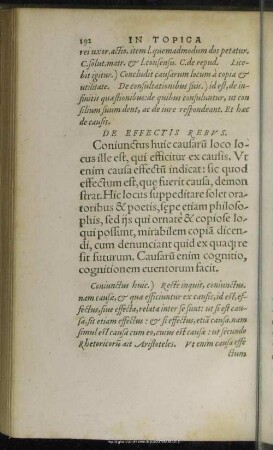 192 IN TOPICA
rei uxor. actio. item l. quemadmodum dos petatur,
C. solut. matr. & l. consensu. C. de repud. Lice-
bit igitur.) Concludit causarum locum à copia &
utilitate. De consultationibus suis.) id est, de in-
finitis quæstionibus: de quibus consuluntur, ut con
silium suum dent, ac de iure respondeant. Et hæc
de causis.
DE EFFECTIS REBVS.
Coniunctus huic causarũ loco lo-
cus ille est, qui efficitur ex causis. Vt
enim causa effectũ indicat: sic quod
effectum est, quæ fuerit causa, demon
strat. Hic locus suppeditare solet ora-
toribus & poetis, sæpe etiam philoso-
phis, sed ijs qui ornate & copiose lo-
qui possunt, mirabilem copiã dicen-
di, cum denunciant quid ex quaq; re
sit futurum. Causarũ enim cognitio,
cognitionem euentorum facit.
Coniunctus huic.) Recte inquit, coniunctus.
nam causæ, & quæ efficiuntur ex causis, id est, ef-
fectus, siue effecta, relata inter se sunt: ut si est cau-
sa, sit etiam effectus: & si effectus, etiã causa. nam
simul est causa cum eo, cuius est causa: ut secundo
Rhetoricorũ ait Aristoteles. Vt enim causa effe
ctum